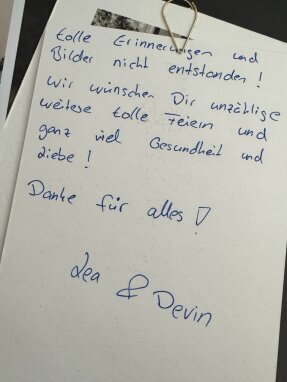 tolle Erinnerungen und
Bilder nicht entstanden!
Wir wünschen Dir unzählige
weitere tolle Feiern und
ganz viel Gesundheit und
Liebe!
Danke für alles!
Lea & Devin